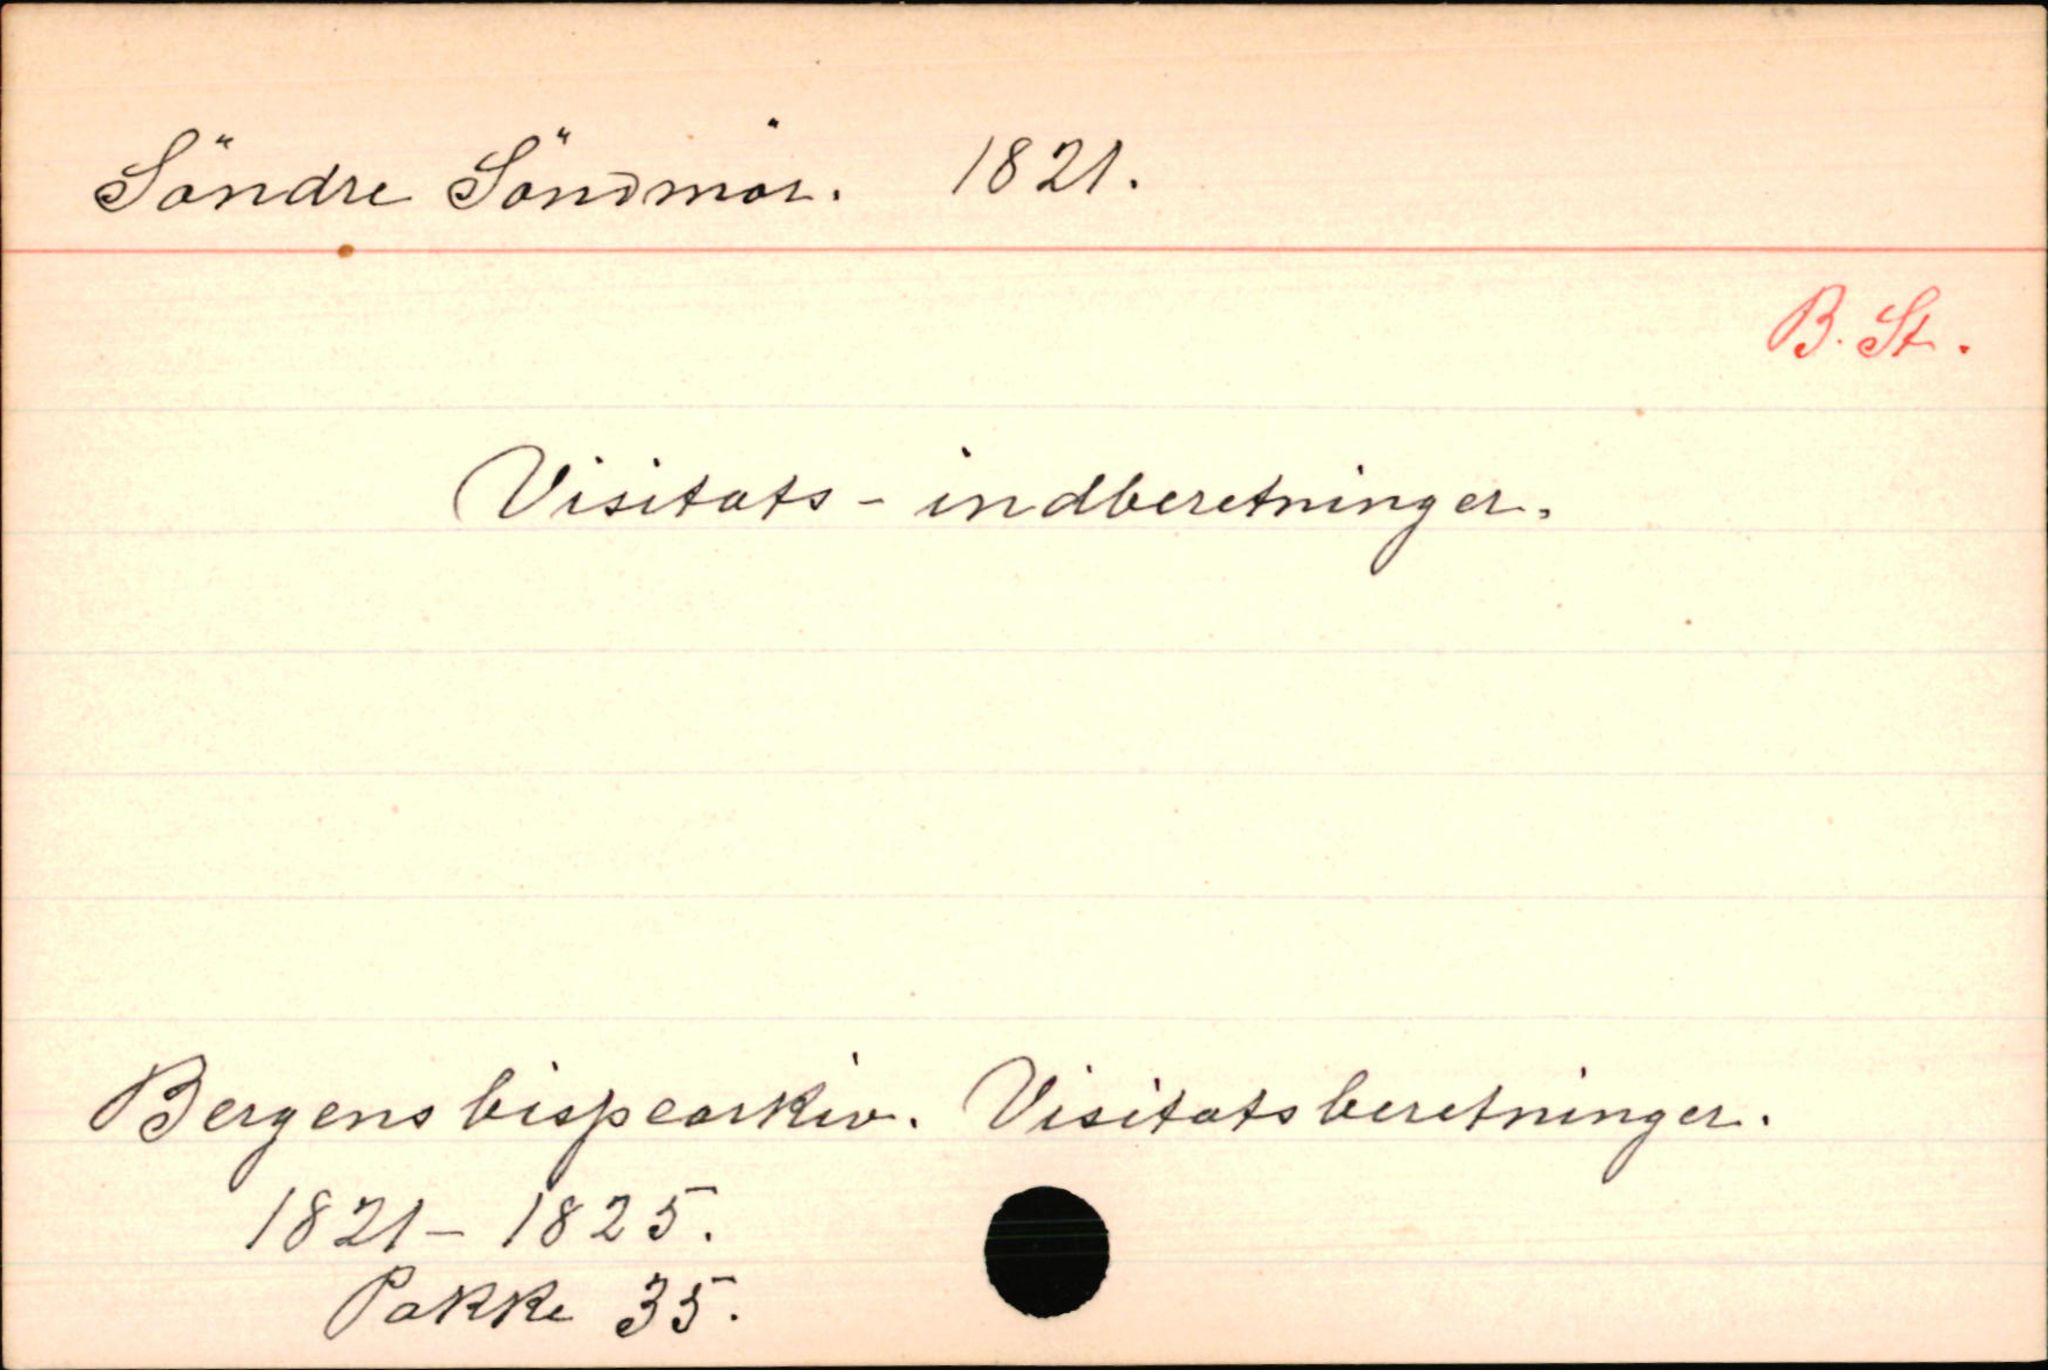 Söndre Söndmör. 1821.
B. St.
Visitats-indberetninger.
Bergens bispearkiv. Visitatsberetninger.
1821-1825.
Pakke 35.